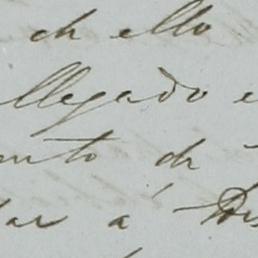 de ello
llegado e
nto de
ar á Por